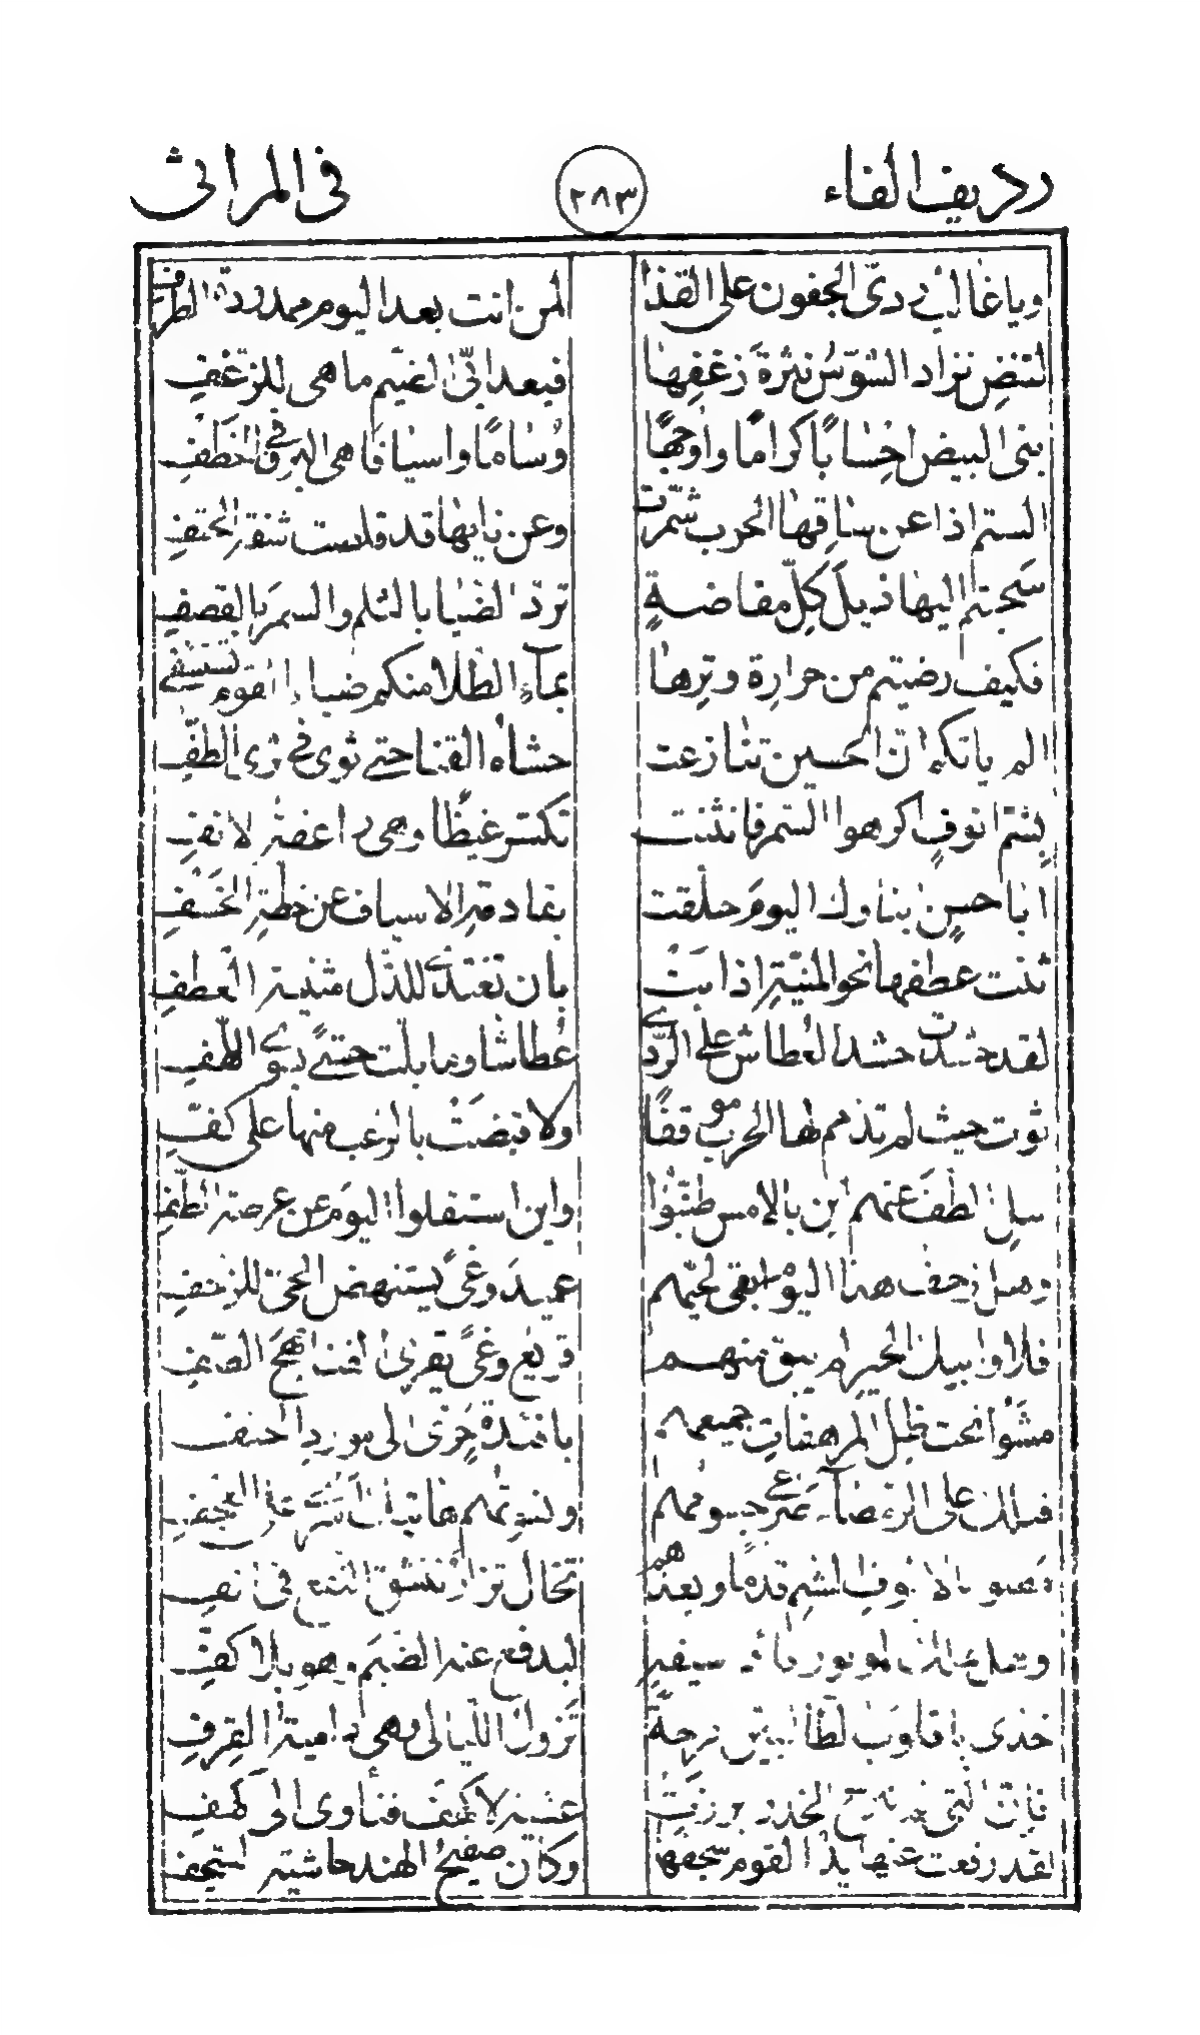 رديف الفاء ٢٨٣ في المراثي
ويا غالب ردّى الجفون على القذا لمن انت بعد اليوم ممدودة الطرف
لتنض نزار الشوس نثرة زغفها فبعد ابىّ الضيم ما هى للزغف
بنى البيض احسابًا كرامًا واوجهًا وسامًا واسيافا هى البرق فى الخطف
الستم اذا عن ساقها الحرب شمّرت وعن نابها قد قلصت شفة الحتف
سحبتم اليها ذيل كلّ مفاضةٍ تردّ الضبا بالثلم والسمر بالقصف
فكيف رضيتم من حرارة وترها بماء الطلا منكم ضباء القوم تستشفي
الم ياتكم انّ الحسين تنازعت حشاه القنا حتى ثوى فى ثرى الطفّ
بشمّ انوفٍ اكرهوا السمر فانثنت تكسّر غيظًا وهى راعفة الانف
ابا حسنٍ ابناؤك اليوم حلقت بقادمة الاسياف عن خطة الخسف
ثنت عطفها نحو المنيّة اذ ابت بان تغتدى للذلّ مثنية العطف
لقد حشدت حشد العطاش على الردى عطاشا وما بلّت حشىً بسوى اللهف
ثوت حيث لم تذمم لها الحرب موقفًا ولا قبضت بالرعب منها على كفّ
سل الطف عنهم اين بالامس طنّبوا واين استقلوا اليوم عن عرصة الطف
وهل زحف هذا اليوم ابقى لحيّهم عميد وغىً يستنهض الحىّ للزحف
فلا وابيك الخير لم يبق منهم قريع وغىً يقرى القنا مهج الصف
مشوا تحت ظل المرهفات جميعهم بافئدة حرّى الى مورد الحتف
فتلك على الرمضاء صرعى جسومهم ونسوتهم هاتيك اسرى على العجف
مضوا بالانوف الشم قدمًا وبعدهم تخال نزارًا تنشق النقع فى انف
وهل يملك الموتور قائم سيفه ليدفع عنه الضيم وهو بلا كف
خذى يا قلوب الطالبيّن قرحة تزول الليالى وهى دامية القرف
فانّ التى لم تبرح الخدر ابرزت عشية لا كهف فتأوى الى كهف
لقد رفعت عنها يد القوم سجفها وكان صفيح الهند حاشية السجف